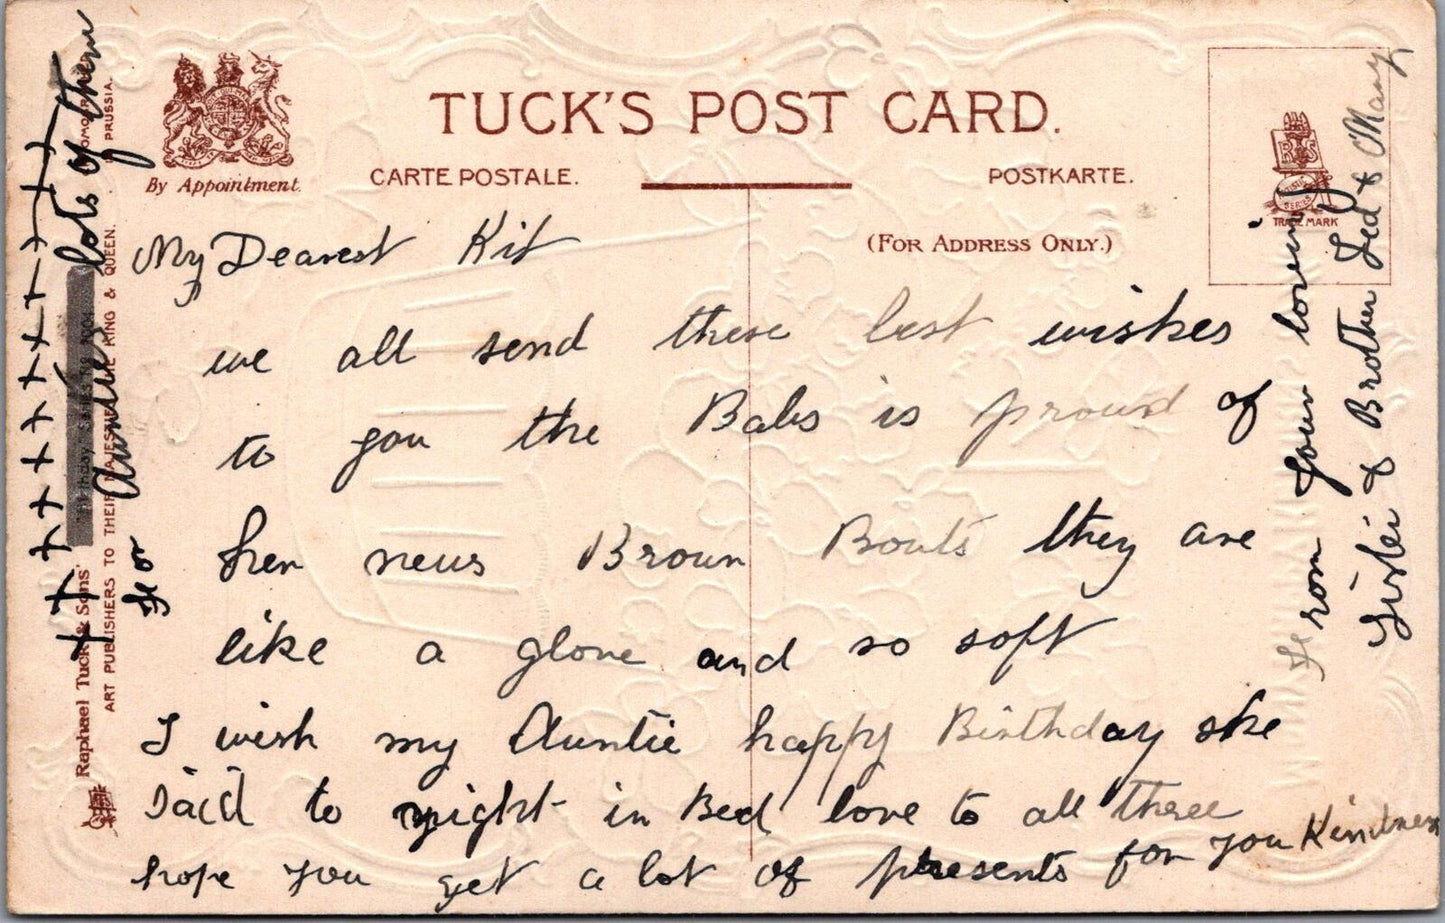 TUCK'S POST CARD.
By Appointment.
CARTE POSTALE.
POSTKARTE.
(FOR ADDRESS ONLY.)
TRADE MARK
My Dearest Kit
we all send these best wishes
to you the Babs is proud of
her news Brown Boots they are
like a glove and so soft
I wish my Auntie happy Birthday she
said to night in Bed love to all three
hope you get a lot of presents for you Kindness
From your loving
Sister & Brother Ted & May
+ + + + + + + + + + +
lots of them
for Aunties
Raphael Tuck & Sons'
ART PUBLISHERS TO THEIR MAJESTIES THE KING & QUEEN.
PRUSSIA.